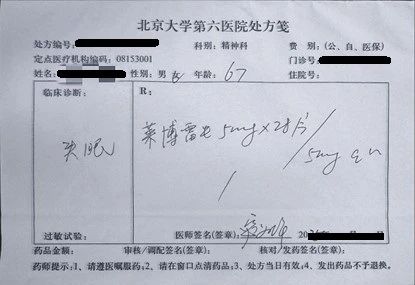 北京大学第六医院处方笺
处方编号: 科别: 精神科 费 别: (公、自、医保)
定点医疗机构编码: 08153001 门诊号:
姓名: 性别: 男 女 年龄: 67 住院号:
临床诊断: R:
失眠 莱博雷生 5mg×28片
/ 5mg qn
过敏试验: 医师签名(签章):
药品金额: 审核/调配签名(签章): 核对/发药签名(签章):
药师提示: 1、请遵医嘱服药; 2、请在窗口点清药品; 3、处方当日有效; 4、发出药品不予退换。